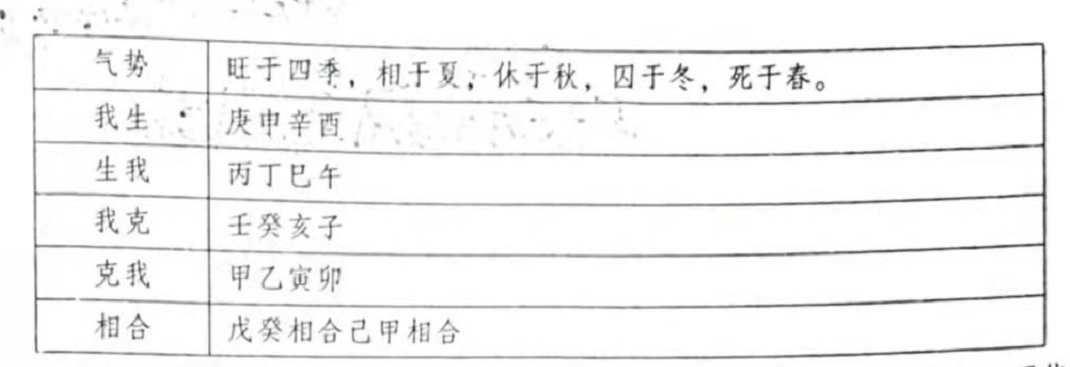 气势 旺于四季，相于夏，休于秋，囚于冬，死于春。
我生 庚申辛酉
生我 丙丁巳午
我克 壬癸亥子
克我 甲乙寅卯
相合 戊癸相合己甲相合